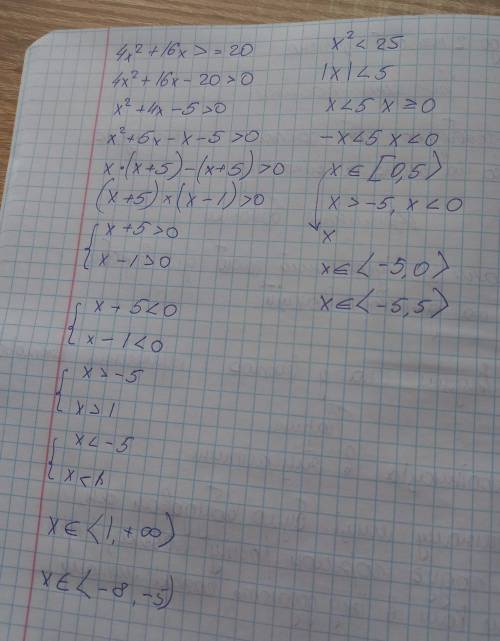 4x² + 16x > = 20
4x² + 16x - 20 > 0
x² + 4x - 5 > 0
x² + 5x - x - 5 > 0
x · (x + 5) - (x + 5) > 0
(x + 5) × (x - 1) > 0
{ x + 5 > 0
x - 1 > 0
{ x + 5 < 0
x - 1 < 0
{ x > -5
x > 1
{ x < -5
x < 1
x ∈ ⟨1, +∞⟩
x ∈ ⟨-8, -5⟩
x² < 25
|x| < 5
x < 5 x ≥ 0
-x < 5 x < 0
x ∈ [0,5⟩
x > -5, x < 0
x
x ∈ ⟨-5,0⟩
x ∈ ⟨-5,5⟩